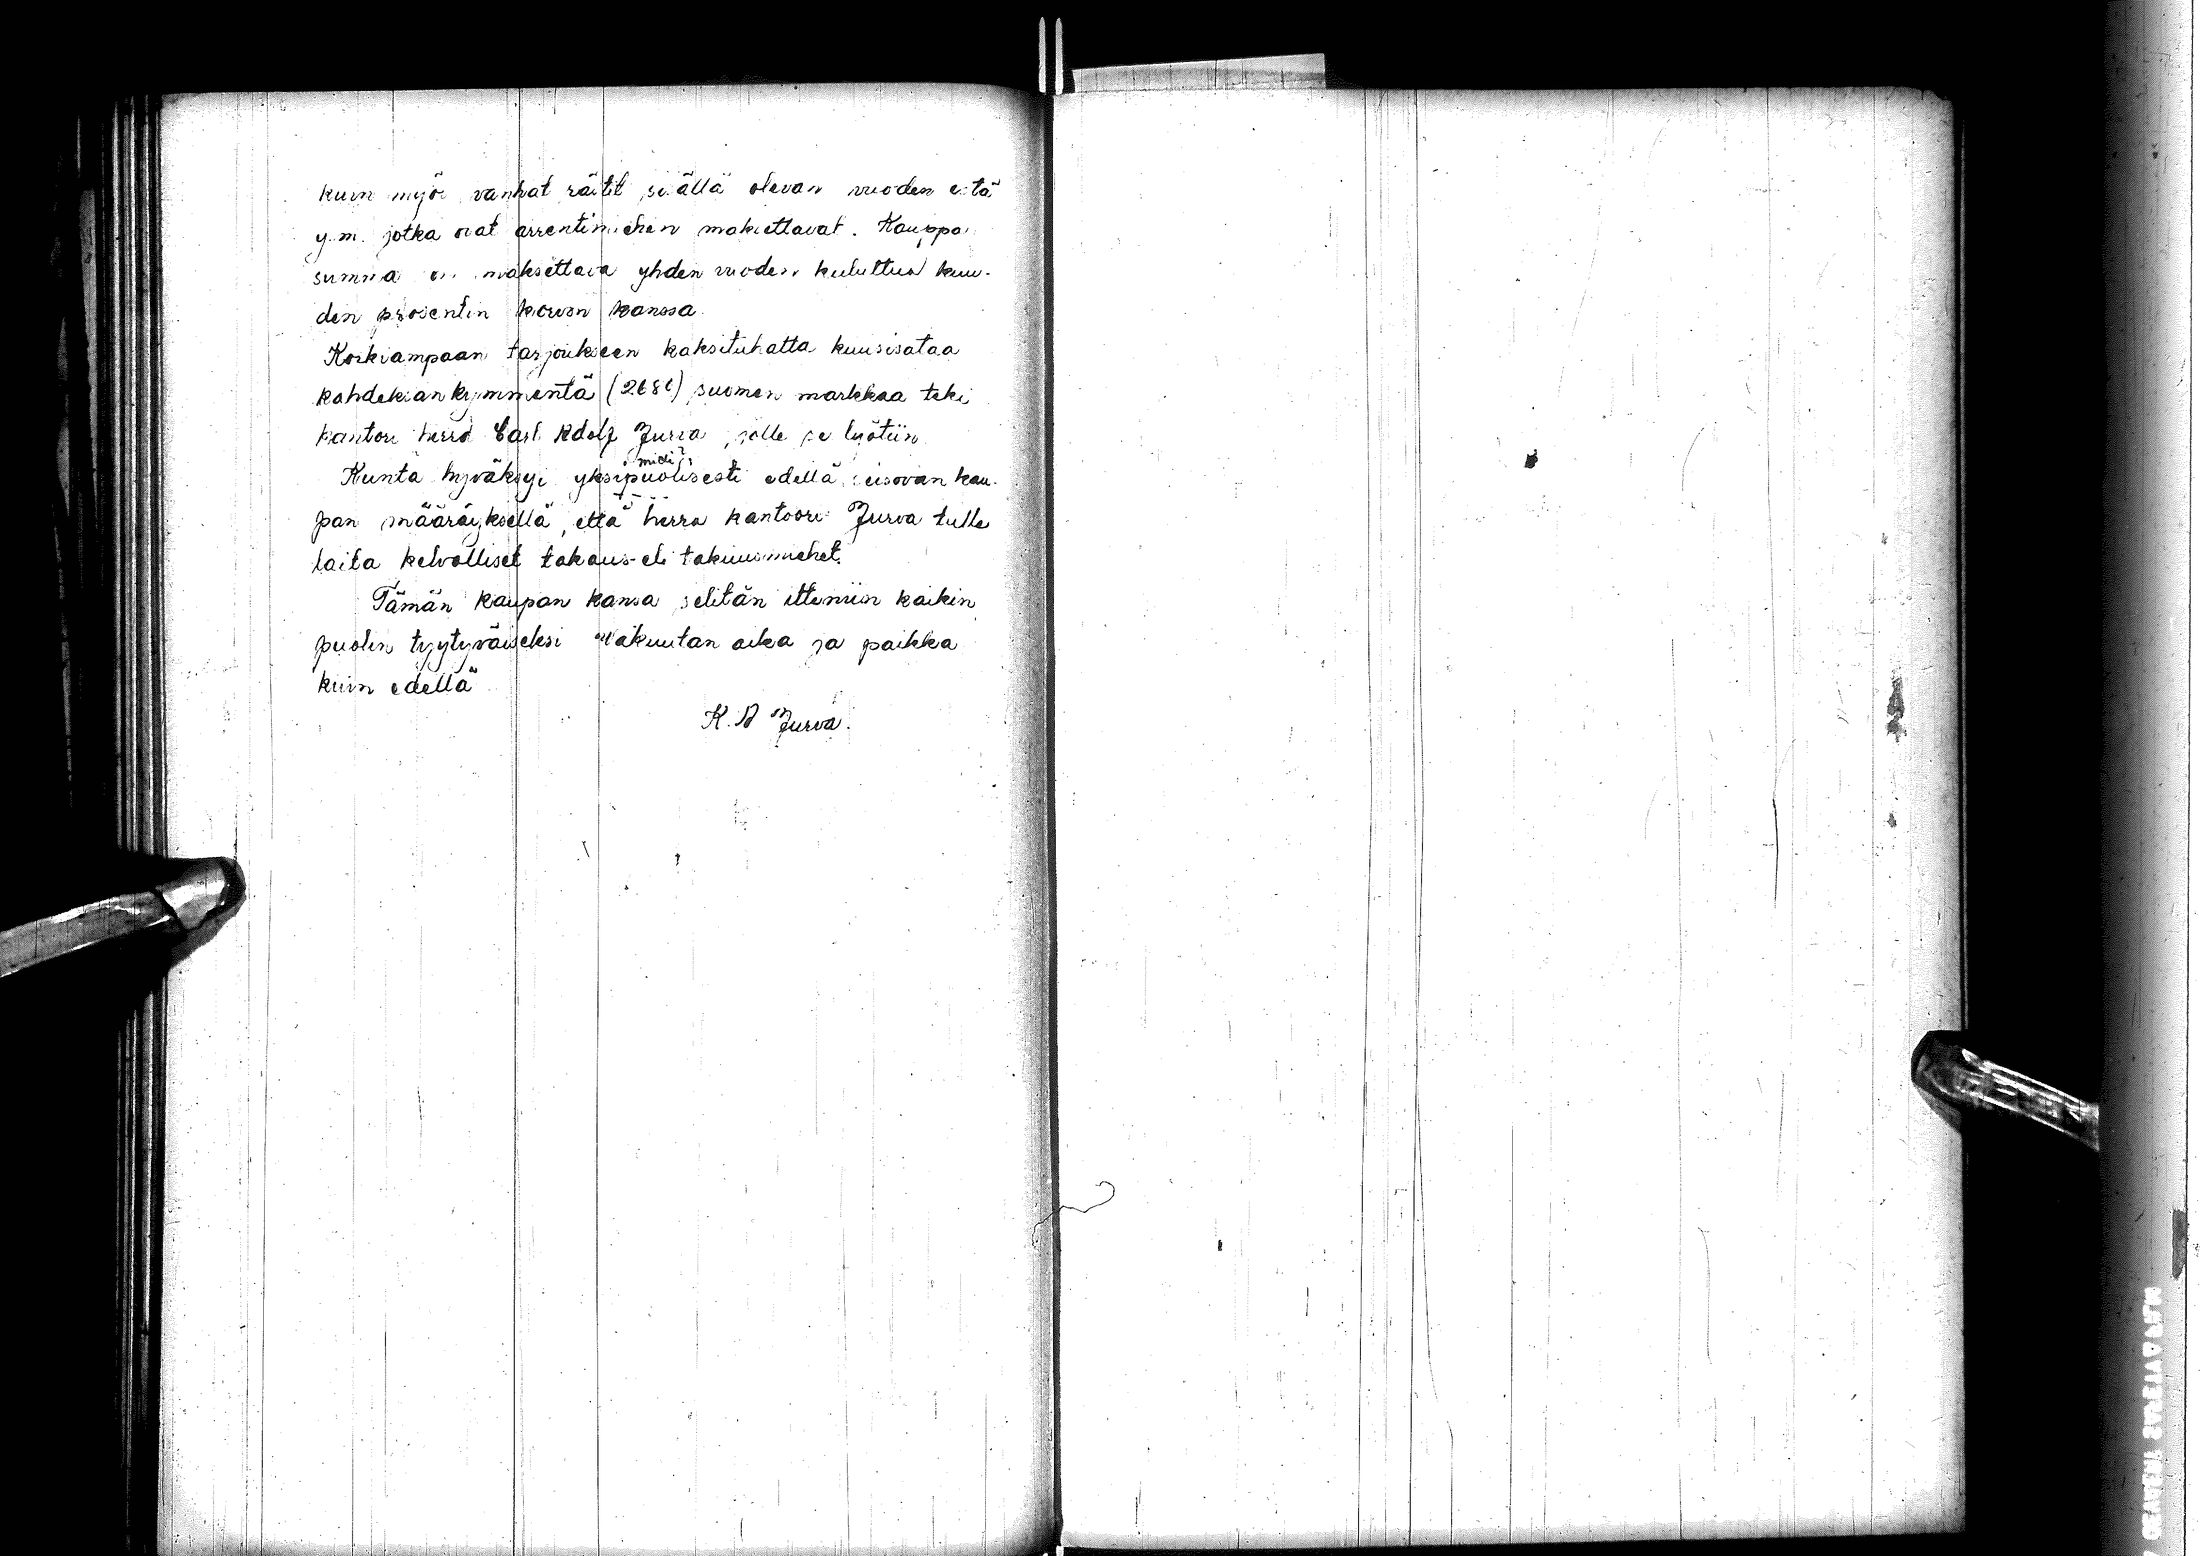 kuin myös vanhat räitit, sisällä olevan vuoden estä
y.m. jotka ovat arrentimiehen maksettavat. Kauppa
summa on maksettava yhden vuoden kuluttua kuu-
den prosentin korvon kanssa.
Korkiampaan tarjoukseen kaksituhatta kuusisataa
kahdeksankymmentä (2680) suomen markkaa teki
kanttori herra Carl Adolf Jurva, jolle se lyötiin.
midi?
Kunta hyväksyi yksipuolisesti edellä seisovan kau-
pan määräyksellä, että herra kantoori Jurva tulle
laita kelvolliset takaus- eli takuusmiehet.
Tämän kaupan kansa selitän itteniin kaikin
puolin tyytyväiseksi vakuutan aika ja paikka
kuin edellä
K. A Jurva.